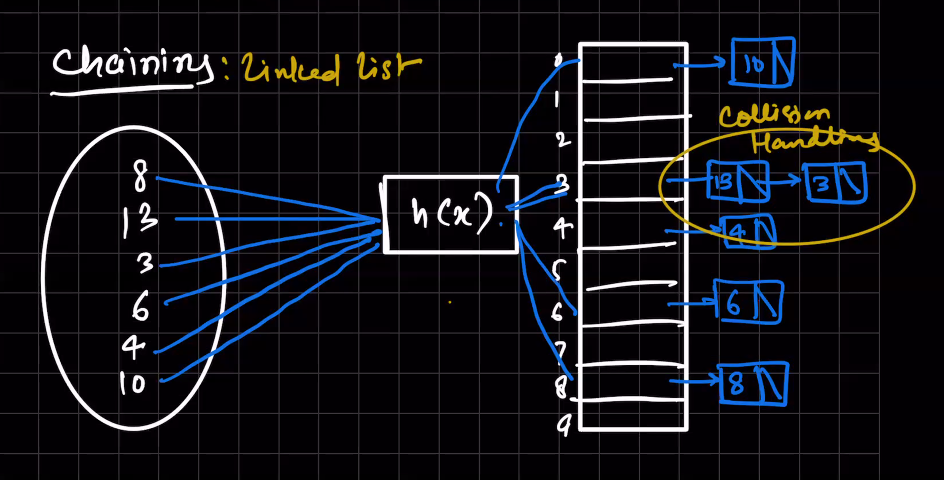 Chaining: Linked List
8
13
3
6
4
10
h(x)
0
1
2
3
4
5
6
7
8
9
10
Collision
Handling
13
3
4
6
8